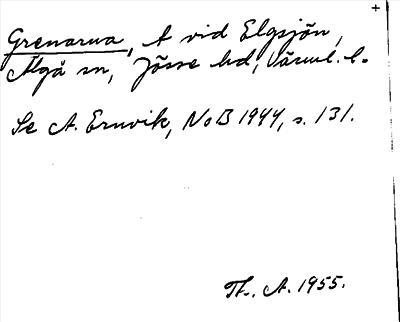 Grenarna, A vid Elgsjön,
Älgå sn, Jösse hd, Värml. l.
Se A. Ernvik, NoB 1944, s. 131.
Th. A. 1955.